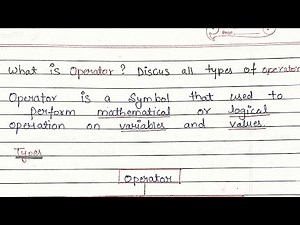 What is Operator? Discus all types of operator
Operator is a Symbol that used to
perform mathematical or logical
operation on variables and values.
Types
Operator